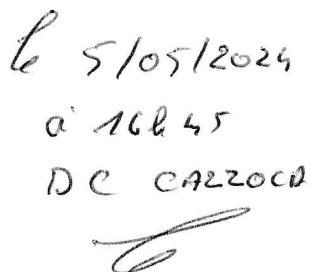 le 5/05/2024
à 16h45
DC CAZZOCA